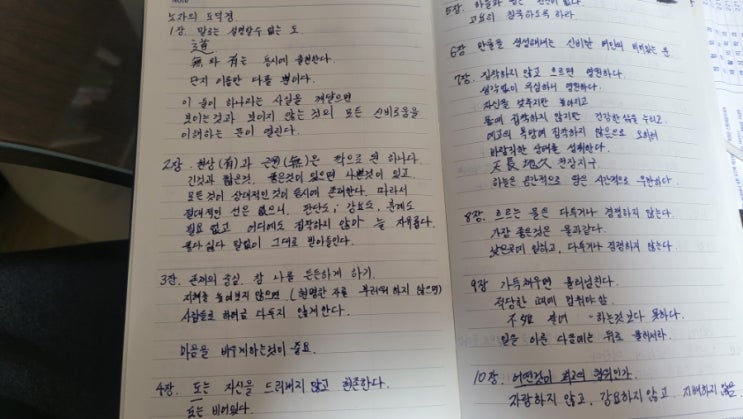 노자의 도덕경
1장. 말로는 설명할 수 없는 도
道
無와 有는 동시에 출현한다.
단지 이름만 다를 뿐이다.
이 둘이 하나라는 사실을 깨달으면
보이는 것과 보이지 않는 것의 모든 신비로움을
이해하는 문이 열린다.
2장. 현상(有)과 근원(無)은 짝으로 된 하나다.
긴것과 짧은것. 좋은것이 있으면 나쁜것이 있고
모든 것이 상대적인것이 동시에 존재한다. 따라서
절대적인 선은 없으니. 판단도, 강요도, 훈계도
필요 없고 어디에도 집착하지 않아 늘 자유롭다.
좋다 싫다 말없이 그대로 받아들인다.
3장. 존재의 중심. 참 나를 든든하게 하기.
지혜를 높여보지 않으면 (현명한 자를 부러워 하지 않으면)
사람들로 하여금 다투지 않게 한다.
마음을 비우게하는것이 중요.
4장. 도는 자신을 드러내지 않고 현존한다.
도는 비어있다.
5장. 하늘과 땅은
고요히 침묵하도록 하라.
6장 만물을 생성해내는 신비한 여인의 문.
7장. 집착하지 않고 으면 영원하다.
생각없이 무심해서 영원하다.
자신을 낮추지만 높아지고
몸에 집착하지 않지만 건강한 삶을 누리고.
에고의 욕망에 집착하지 않으므로 오히려
바람직한 상태를 성취한다.
天長地久 천장지구
하늘은 공간적으로 땅은 시간적으로 무한하다.
8장. 흐르는 물은 다투거나 경쟁하지 않는다.
가장 좋은것은 물과같다.
낮은곳에 임하고, 다투거나 경쟁하지 않는다.
9장 가득채우면 흘러넘친다.
적당한 때에 멈춰야 함.
不如 하는것보다 못하다.
일을 이룬 다음에는 뒤로 물러서라.
10장. 어떤것이 최고의 행위인가.
자랑하지 않고, 강요하지 않고. 지배하지 않음